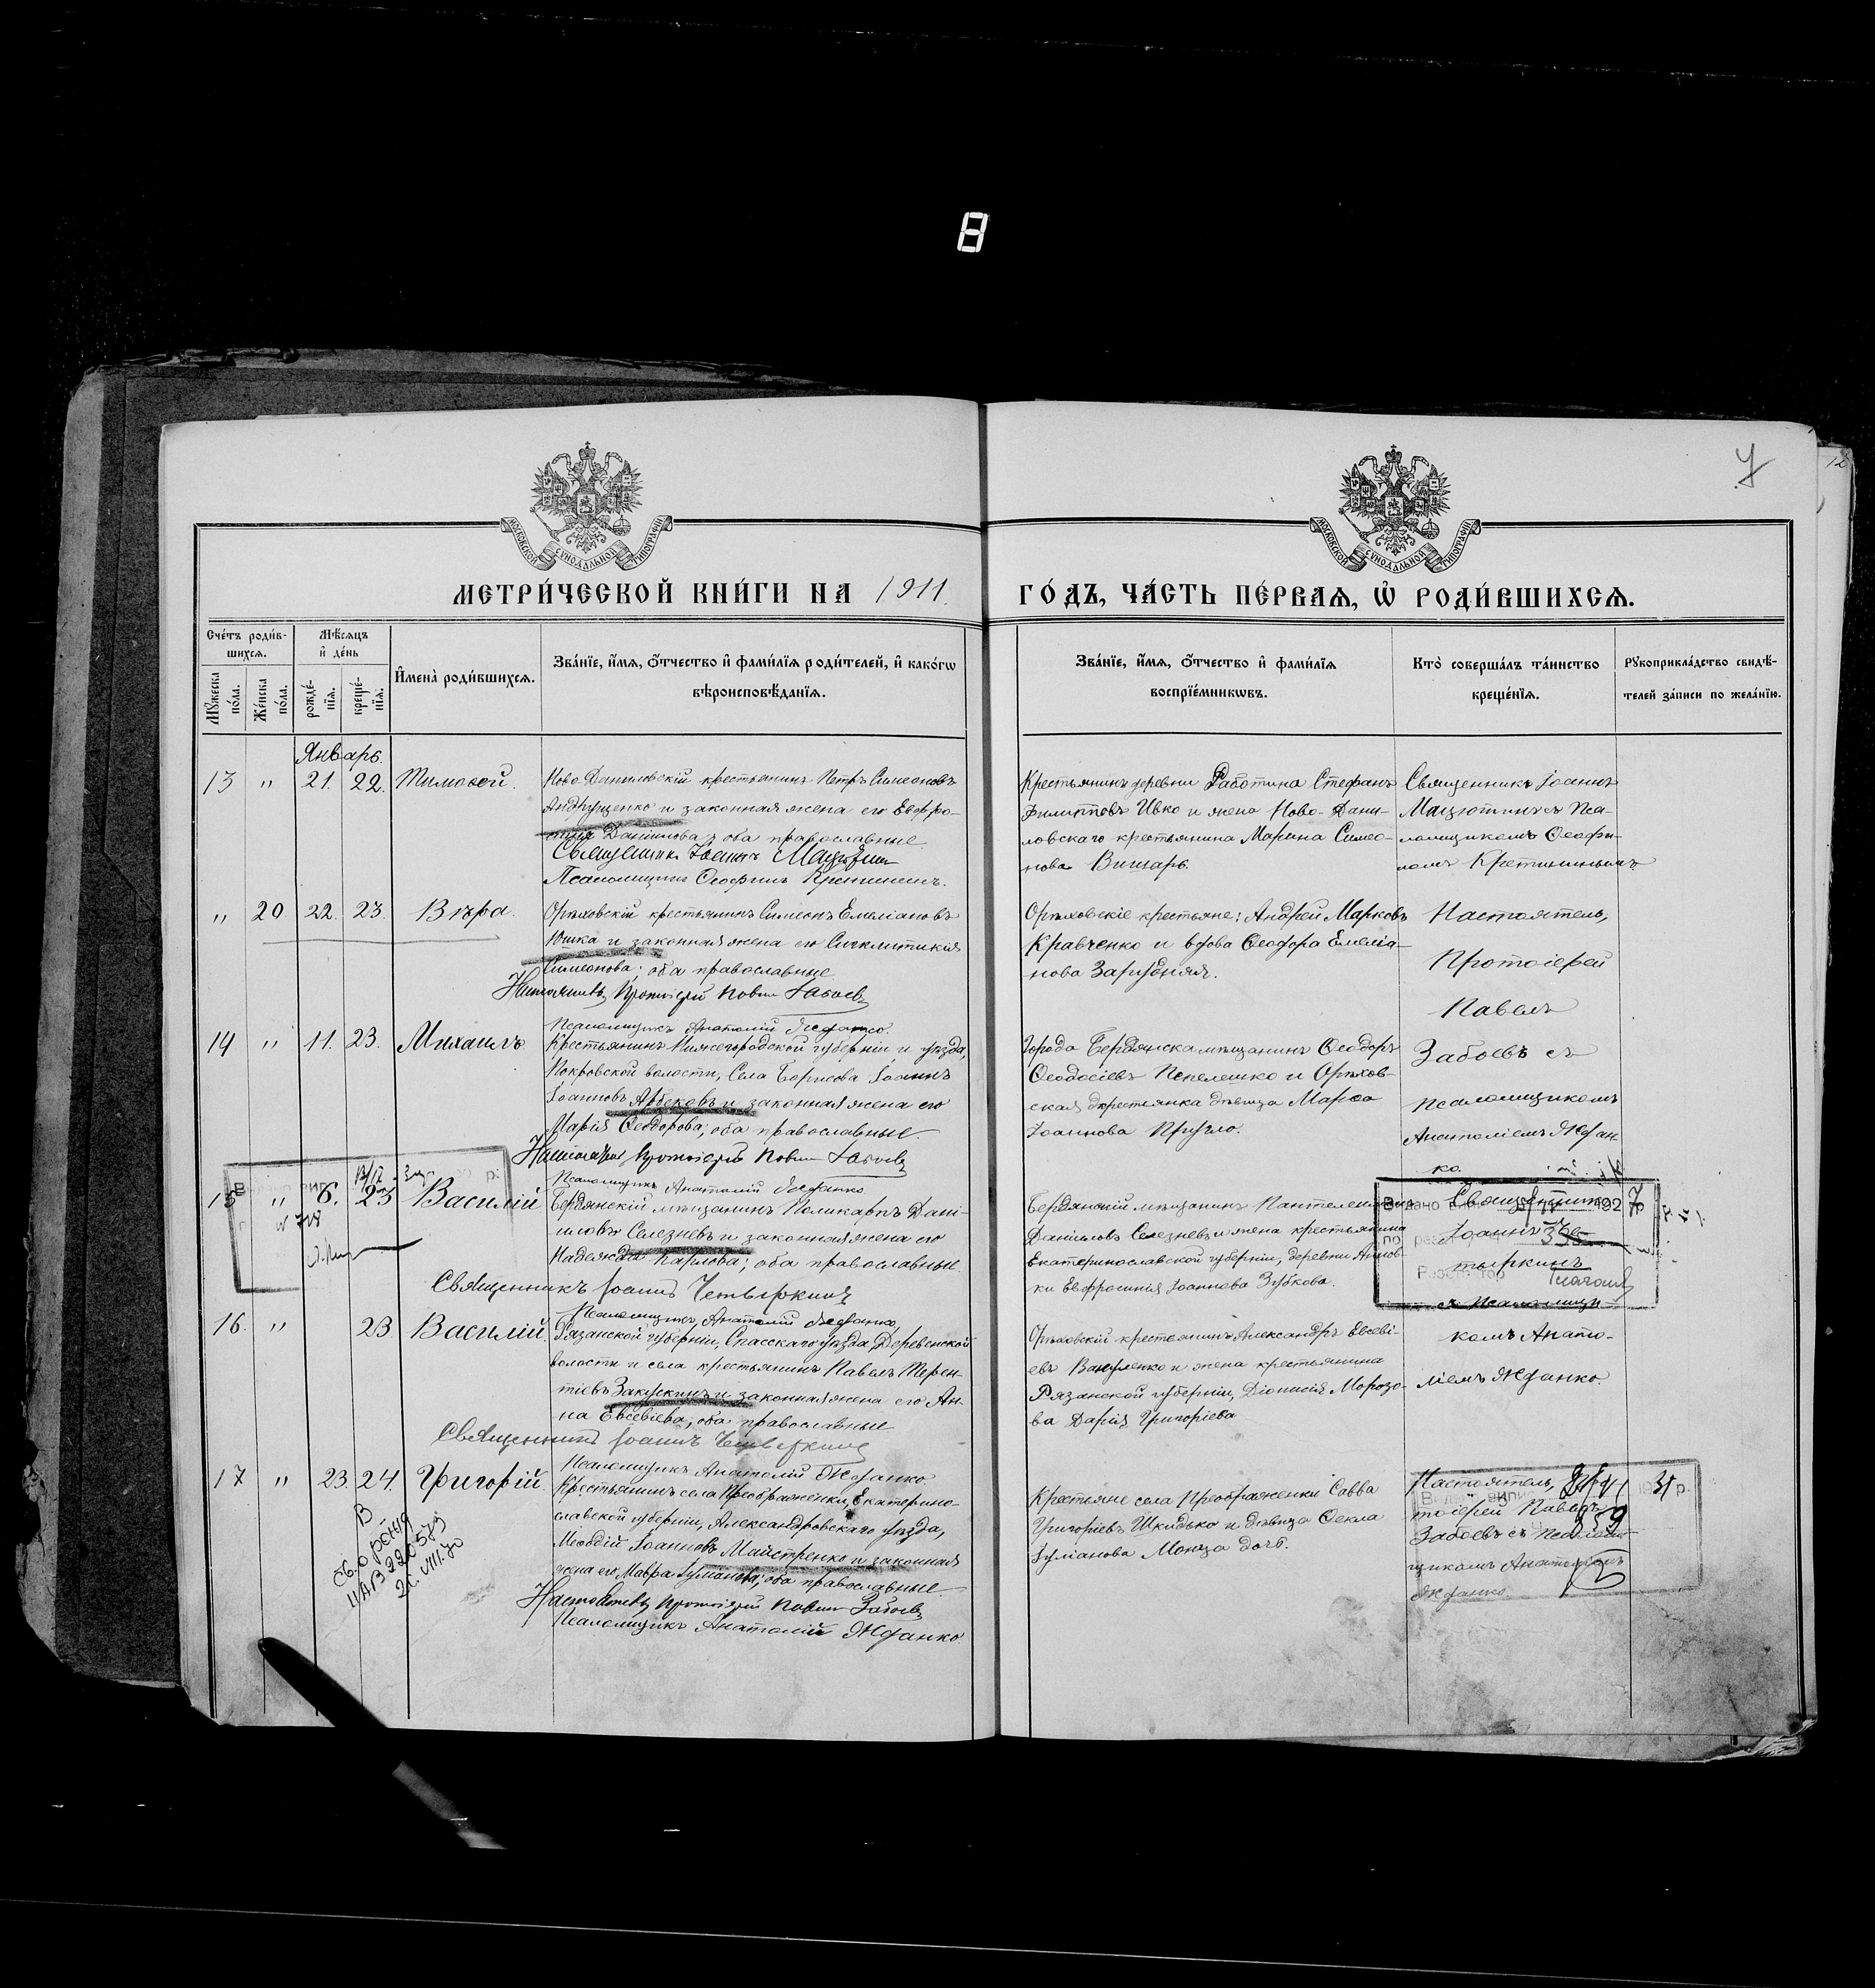 8
У
12
МОСКОВСКОЙ СУНОДАЛЬНОЙ ТИПОГРАФІИ
МОСКОВСКОЙ СУНОДАЛЬНОЙ ТИПОГРАФІИ
МЕТРИ́ЧЕСКОЙ КНИ́ГИ НА 1911.
ГО́ДЪ, ЧА́СТЬ ПЕ́РВАЯ, Ѡ҆ РОДИ́ВШИХСЯ.
Сче́тъ роди́вшихся.
Мꙋ́жеска по́ла.
Же́нска по́ла.
Мѣ́сяцъ и҆ де́нь
рожде́нїя.
креще́нїя.
И҆мена̀ роди́вшихся.
Зва́нїе, и҆́мя, ѻ҆́тчество и҆ фами́лїя роди́телей, и҆ како́гѡ
вѣроисповѣ́данїя.
Зва́нїе, и҆́мя, ѻ҆́тчество и҆ фами́лїя
воспрїе́мникѡвъ.
Кто̀ соверша́лъ та́инство
креще́нїя.
Рꙋкоприкла́дство свидѣ́-
телей за́писи по жела́нїю.
Январь.
13 " 21. 22. Тимоѳей.
Ново-Даниловскій крестьянинъ Петръ Симеоновъ
Андрущенко и законная жена его Евфро-
синія Даніилова; оба православные
Священникъ Іоаннъ Мацютинъ
Псаломщикъ Ѳеофилъ Кретининъ.
Крестьянинъ деревни Работина Стефанъ
Филипповъ Ивко и жена Ново-Дани-
ловскаго крестьянина Марина Симео-
нова Вишарь.
Священникъ Іоаннъ
Мацютинъ съ Пса-
ломщикомъ Ѳеофи-
ломъ Кретининымъ
" 20 22. 23. Вѣра.
Орѣховскій крестьянинъ Симеонъ Емеліановъ
Юшка и законная жена его Синклитикія
Симеонова; оба православные
Настоятель Протоіерей Павелъ Забоевъ
Псаломщикъ Анатолій Жданко.
Орѣховскіе крестьяне: Андрей Марковъ
Кравченко и вдова Ѳеодора Емеліа-
нова Зарубная.
Настоятель,
Протоіерей
Павелъ
Забоевъ съ
псаломщикомъ
Анатоліемъ Ждан-
ко.
14 " 11. 23. Михаилъ
Крестьянинъ Нижегородской губерніи и уѣзда,
Покровской волости, Села Борисова Іоаннъ
Іоанновъ Арбековъ и законная жена его
Марія Ѳеодорова; оба православные.
Настоятель Протоіерей Павелъ Забоевъ
Псаломщикъ Анатолій Жданко
Города Бердянска мѣщанинъ Ѳеодоръ
Ѳеодосіевъ Пепелешко и Орѣхов-
ская крестьянка дѣвица Марѳа
Іоаннова Пругло.
15 " 6. 23 Василій
N 718
Бердянскій мѣщанинъ Поликарпъ Дані-
иловъ Селезневъ и законная жена его
Надежда Карпова; оба православные.
Священникъ Іоаннъ Четыркинъ
Псаломщикъ Анатолій Жданко,
Бердянскій мѣщанинъ Пантелеимонъ
Даніиловъ Селезневъ и жена крестьянина
Екатеринославской губерніи, деревни Аннов-
ки Евфросинія Іоаннова Зубкова.
Священникъ
Іоаннъ Че-
тыркинъ
съ псаломщи-
комъ Анато-
ліемъ Жданко.
Видано 1927
16. " 23 Василій
Рязанской губерніи, Спасскаго уѣзда, Деревенской
волости и села крестьянинъ Павелъ Терен-
тіевъ Закускинъ и законная жена его Ан-
на Евсевіева; оба православные
Священникъ Іоаннъ Четыркинъ
Псаломщикъ Анатолій Жданко
Орѣховскій крестьянинъ Александръ Евсеві-
евъ Вакуленко и жена крестьянина
Рязанской губерніи, Діонисія Морозо-
ва Дарія Григоріева
17 " 23. 24. Григорій
Крестьянинъ села Преображенки, Екатерино-
славской губерніи, Александровскаго уѣзда,
Меѳодій Іоанновъ Майстренко и законная
жена его Мавра Іуліанова; оба православные
Настоятель Протоіерей Павелъ Забоевъ
Псаломщикъ Анатолій Жданко
Крестьяне села Преображенки Савва
Григоріевъ Шкидько и дѣвица Ѳекла
Іуліанова Моница дочь.
Настоятель, Про-
тоіерей Павелъ
Забоевъ съ псалом-
щикомъ Анатоліемъ
Жданко.
359
21. VIII. 70